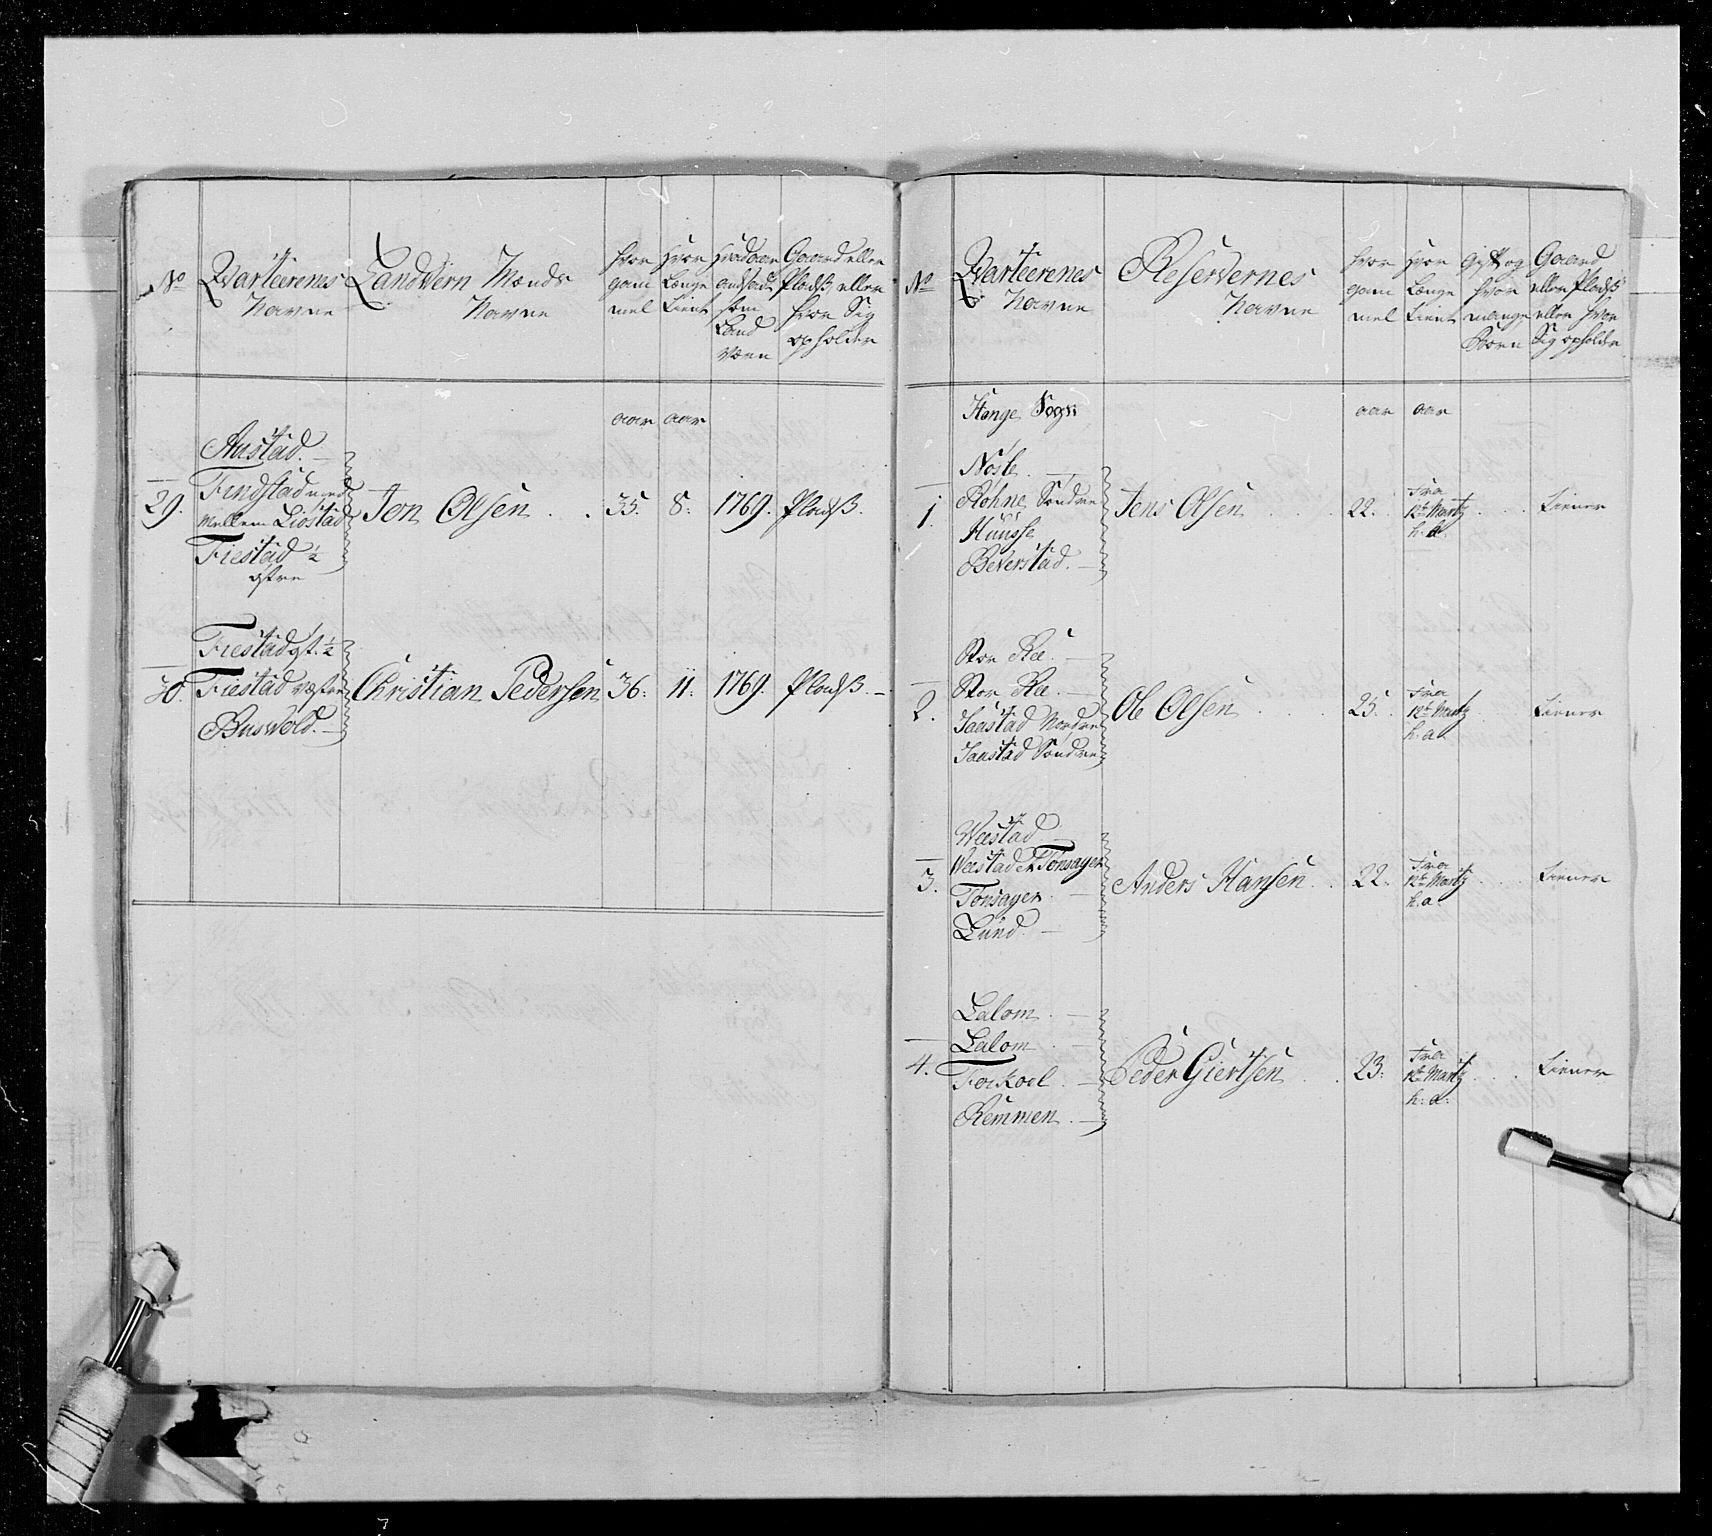 No
Qvarteerenes
Navne
Landvern Mænds
Navne
hvor
gam
mel
hvor
Længe
tient
hvad aar
ansadt
som
Land
værn
Gaard eller
Pladß, eller
hvor Sig
opholder
aar aar
29.
Austad.
Findstad
Mellem Liostad
Fiestad ½
østre
Jon Olsen
35.
8.
1769.
Pladß.
30.
Fiestad øst. ½
Fiestad Væstre
Buswold.
Christian Pedersen
36.
11.
1769.
Pladß.
No
Qvarteerenes
Navne
Reservernes
Navne
hvor
gam
mel
hvor
Længe
tient
Gift og
hvor
mange
Børn
Gaard
eller Pladß
eller hvor
Sig opholder
Stange Sogn
aar aar
1.
Nøsle
Rohne Søndre
Huusse
Beverstad.
Jens Olsen
22.
Fra
12te Martz
h. a.
tiener
2.
Stor Ree
Stor Ree.
Saastad Nordre
Saastad Søndre
Ole Olsen
25.
Fra
12te Martz
h. a.
tiener
3.
Weestad
Weestad et Tonsager
Tonsager
Lund.
Anders Hansen
22.
Fra
12te Martz
h. a.
tiener
4.
Lalom.
Lalom
Forkoel
Remmen.
Peder Giertsen
23.
Fra
12te Martz
h. a.
tiener